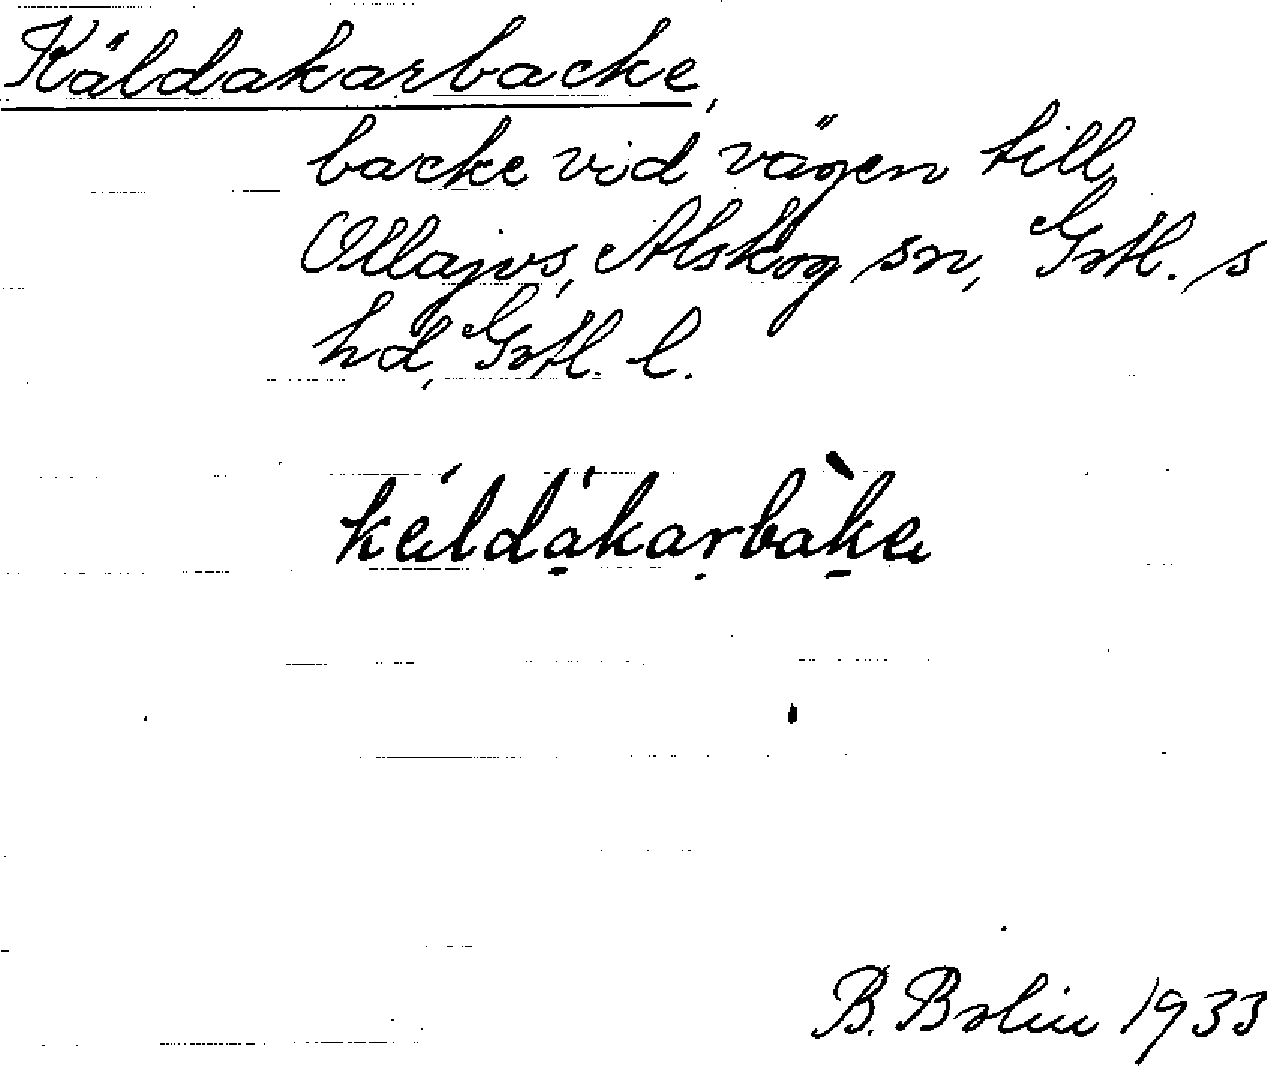 Käldakarbacke,
backe vid vägen till
Ollajvs, Alskog sn, Gotl. s
hd, Gotl. l.
käldakarbaka
B. Bolin 1933